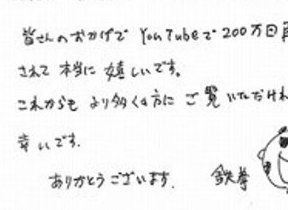 皆さんのおかげで YouTubeで 200万回再
されて 本当に 嬉しいです。
これからも より多くの方に ご覧いただけれ
幸いです.
ありがとうございます. 鉄拳